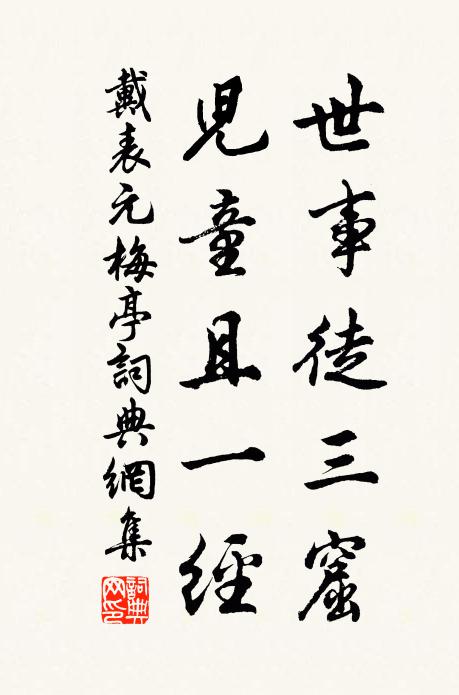 世事徒三窟
兒童且一經
戴表元梅亭詞典網集
詞典網印